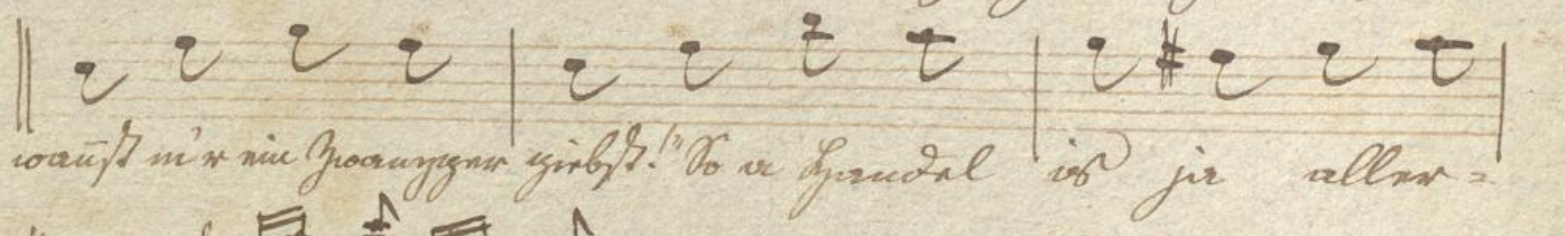 wannst mir ein Zwanzger giebst!" So a Handel is ja aller=